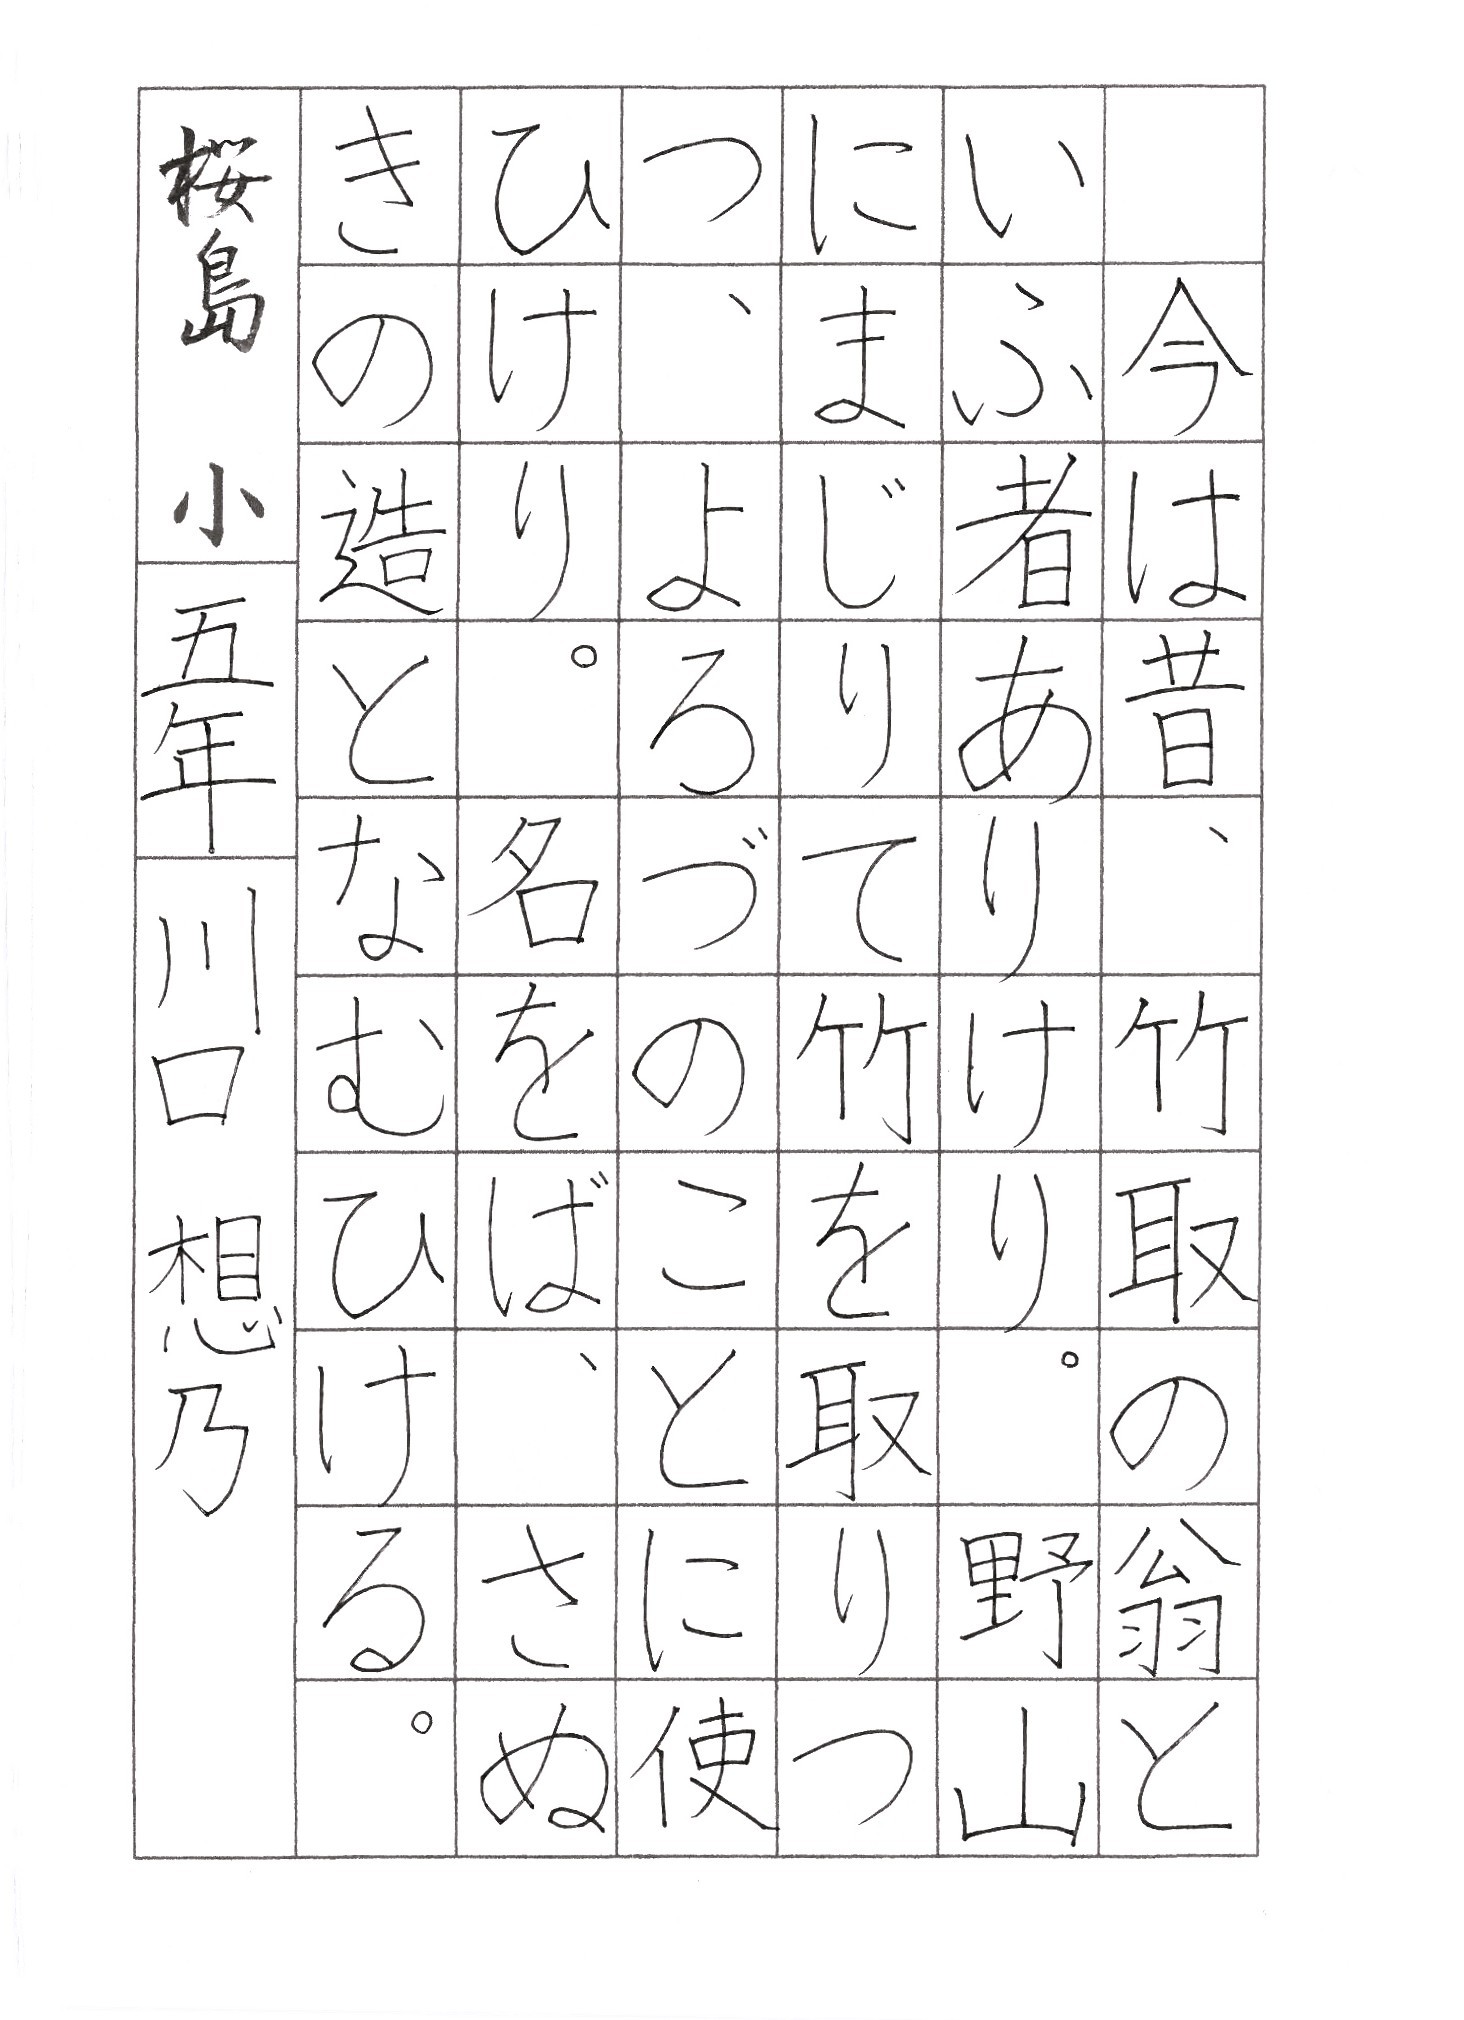 今は昔、竹取の翁と
いふ者ありけり。野山
にまじりて竹を取りつ
つ、よろづのことに使
ひけり。名をば、さぬ
きの造となむひける。
桜島　小　五年　川口　想乃